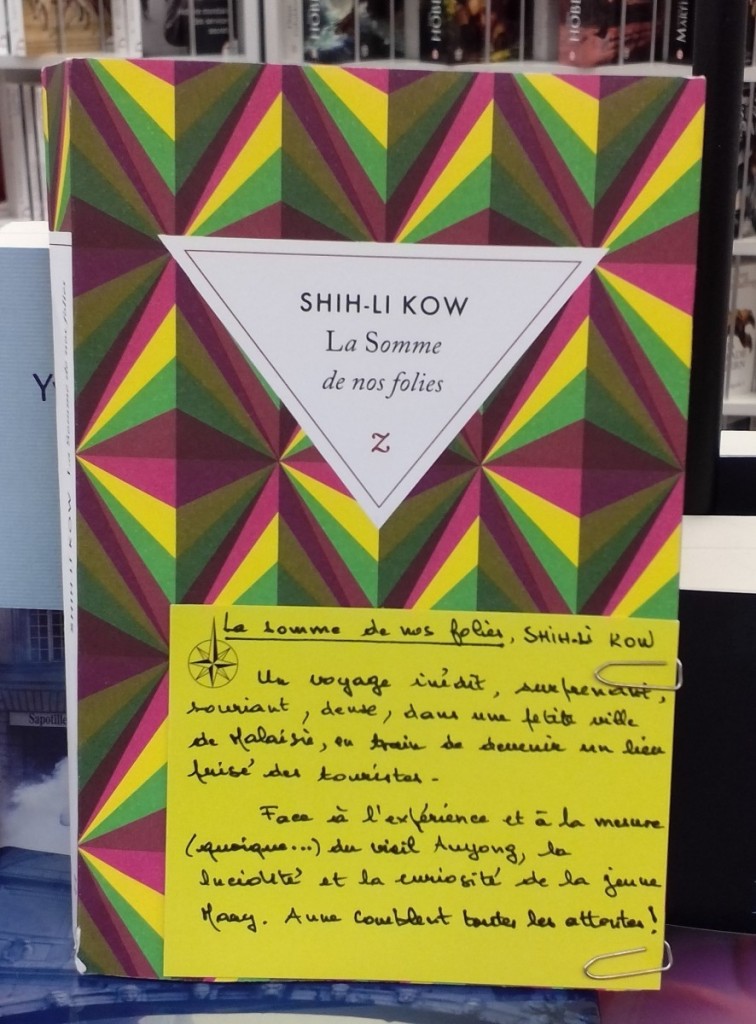 HOBB
HOBB
HOBB
MARTI
SHIH-LI KOW
La Somme
de nos folies
Z
SHIH-LI KOW La Somme de nos folies
Y
Sapotille
La somme de nos folies, SHIH-Li KOW
Un voyage inédit, surprenant,
souriant, dense, dans une petite ville
de Malaisie, en train de devenir un lieu
prisé des touristes -
Face à l'expérience et à la mesure
(quoique...) du vieil Auyong, la
lucidité et la curiosité de la jeune
Mary. Anne comblent toutes les attentes!